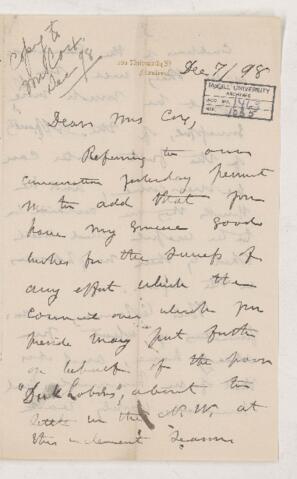 Copy to
Mrs Cox
Dec 98
University St
Dec 7/98
McGILL UNIVERSITY
ARCHIVES
ACC. NO.
REF.
Dear Mrs Cox,
Referring to our
conversation yesterday permit
me to add that you
have my sincere good
wishes for the success of
any effort which the
Committee over which you
preside may put forth
on behalf of the poor
"Doukhobors", about to
settle in the N.W. at
this inclement season